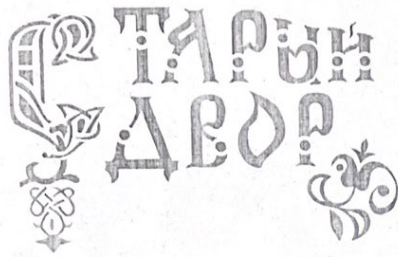 СТАРЫЙ
ДВОР